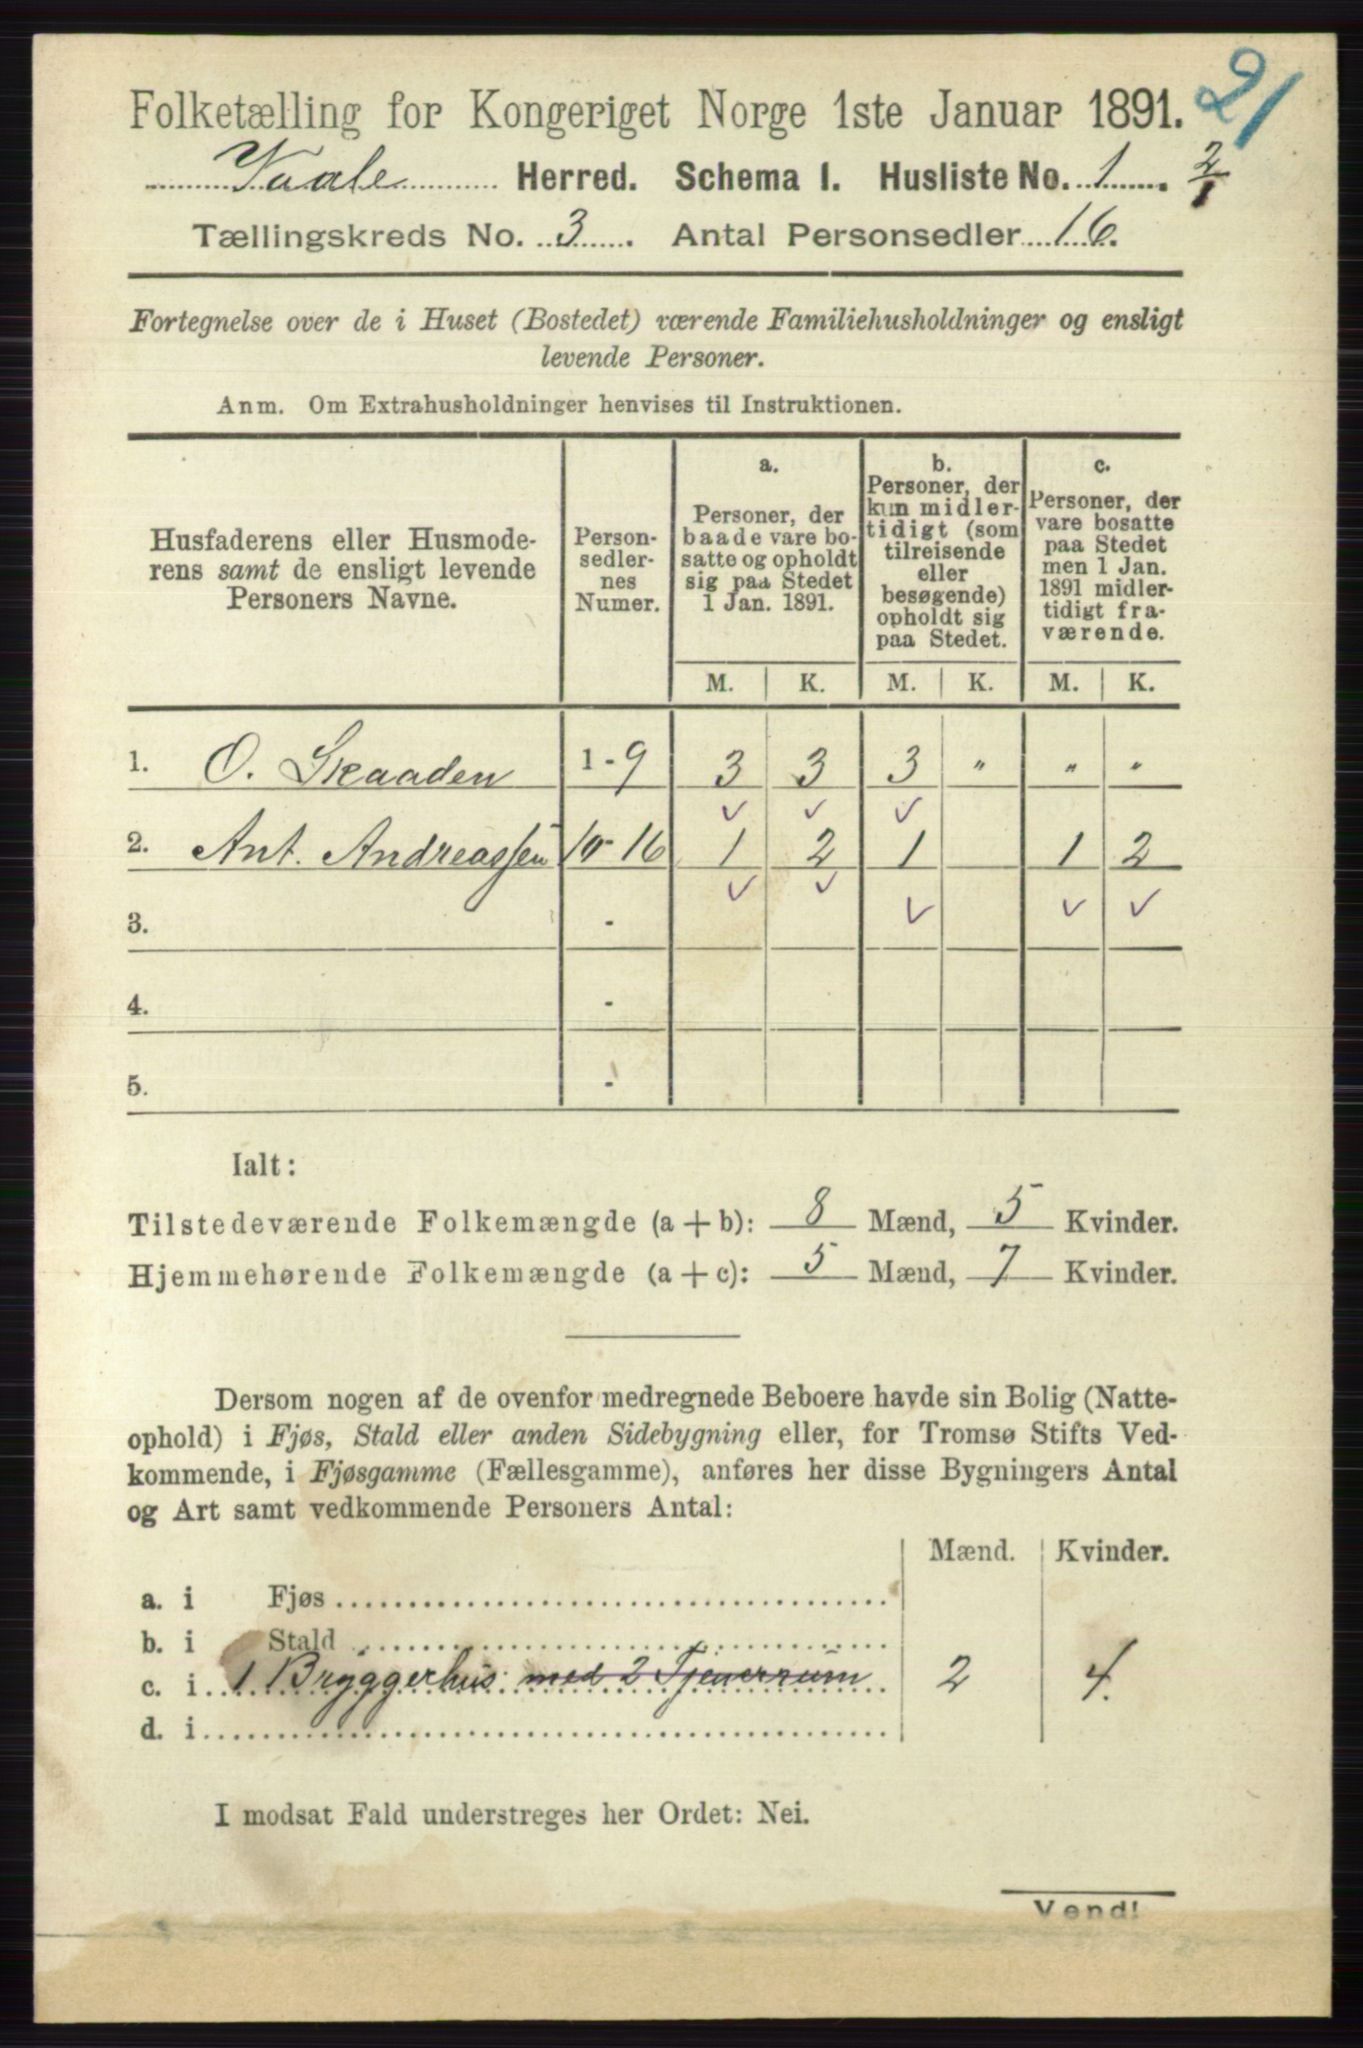 21
Folketælling for Kongeriget Norge 1ste Januar 1891.
Vaale Herred. Schema I. Husliste No. 1. 2/1
Tællingskreds No. 3. Antal Personsedler 16.
Fortegnelse over de i Huset (Bostedet) værende Familiehusholdninger og ensligt
levende Personer.
Anm. Om Extrahusholdninger henvises til Instruktionen.
Husfaderens eller Husmode-
rens samt de ensligt levende
Personers Navne.
Person-
sedler-
nes
Numer.
a.
Personer, der
baade vare bo-
satte og opholdt
sig paa Stedet
1 Jan. 1891.
b.
Personer, der
kun midler-
tidigt (som
tilreisende
eller
besøgende)
opholdt sig
paa Stedet.
c.
Personer, der
vare bosatte
paa Stedet
men 1 Jan.
1891 midler-
tidigt fra-
værende.
M. K. M. K. M. K.
1. O. Skaaden 1-9 3 3 3 " " "
2. Ant. Andreassen 10-16 1 2 1 1 2
3. -
4. -
5. -
Ialt:
Tilstedeværende Folkemængde (a + b): 8 Mænd, 5 Kvinder.
Hjemmehørende Folkemængde (a + c): 5 Mænd, 7 Kvinder.
Dersom nogen af de ovenfor medregnede Beboere havde sin Bolig (Natte-
ophold) i Fjøs, Stald eller anden Sidebygning eller, for Tromsø Stifts Ved-
kommende, i Fjøsgamme (Fællesgamme), anføres her disse Bygningers Antal
og Art samt vedkommende Personers Antal:
Mænd. Kvinder.
a. i Fjøs
b. i Stald
c. i 1 Bryggerhus med 2 Tjenerrum 2 4.
d. i
I modsat Fald understreges her Ordet: Nei.
Vend!